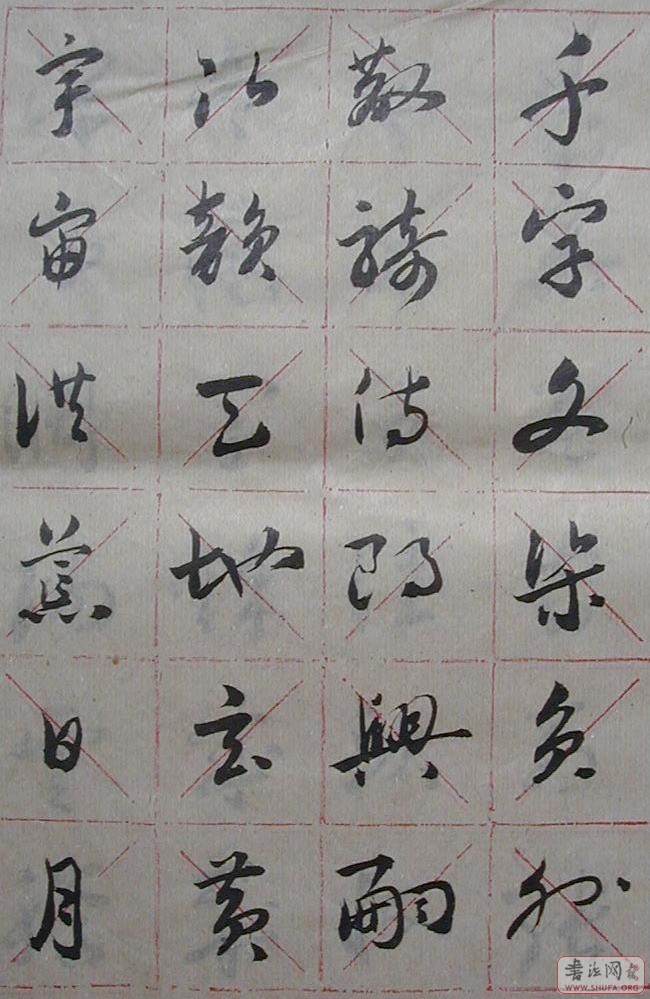 千字文梁員外
散騎侍郎興嗣
次韻天地玄黃
宇宙洪荒日月
書法网
WWW.SHUFA.ORG